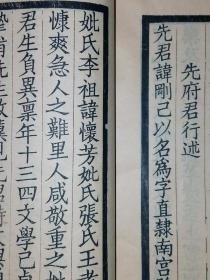 先府君行述
先君諱剛己以名為字直隸南宮
妣氏李祖諱懷芳妣氏張氏王考
慷爽急人之難里人咸敬重之妣
君生負異稟年十三四文學已卓